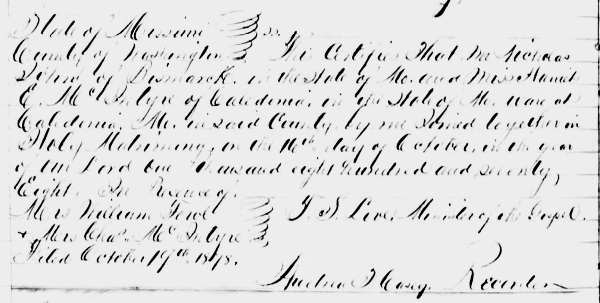 State of Missouri } ss.
County of Washington } This Certifies That Mr Nicholas
John, of Bismarck, in the State of Mo. and Miss
E. McIntyre of Caledonia, in the State of Mo. ware at
Caledonia, Mo. in said County, by me Joined together in
Holy Matrimony, on the 16th day of October, in the year
of our Lord one thousand eight hundred and seventy,
Eight. In Presence of.
Mrs William } J. S. Minister of the Gospel.
& Mrs Chas. McIntyre }
Filed October 19th 1878.
Andrew Casey. Recorder